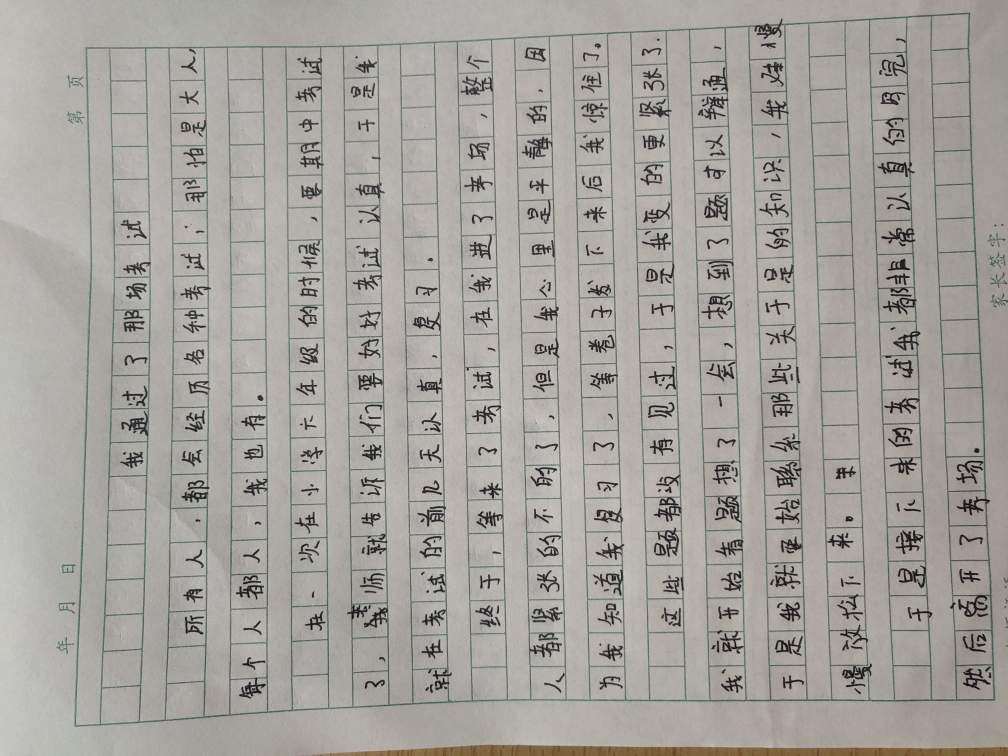 年 月 日
第 页
我通过了那场考试
所有人,都会经历名种考试;那怕是大人,
每个人都人,我也有。
在一次在小学六年级的时候,要期中考试
了,老师就告诉我们要好好考试认真,于是我
就在考试的前几天认真,复习.
终于,等来了考试,在我进了考场,整个
人都紧张的不的了,但是我心里是平静的,因
为我知道我复习了,等卷子发下来后我惊住了。
这些题都没有见过,于是我变的更紧张了.
我就开始看题想了一会,想到了题可以辩通,
于是我就开始联系那些关于是的知识,我好慢
慢放松下来。
于是接下来的考试我都非常认真的写完,
然后离开了考场。
家长签字: